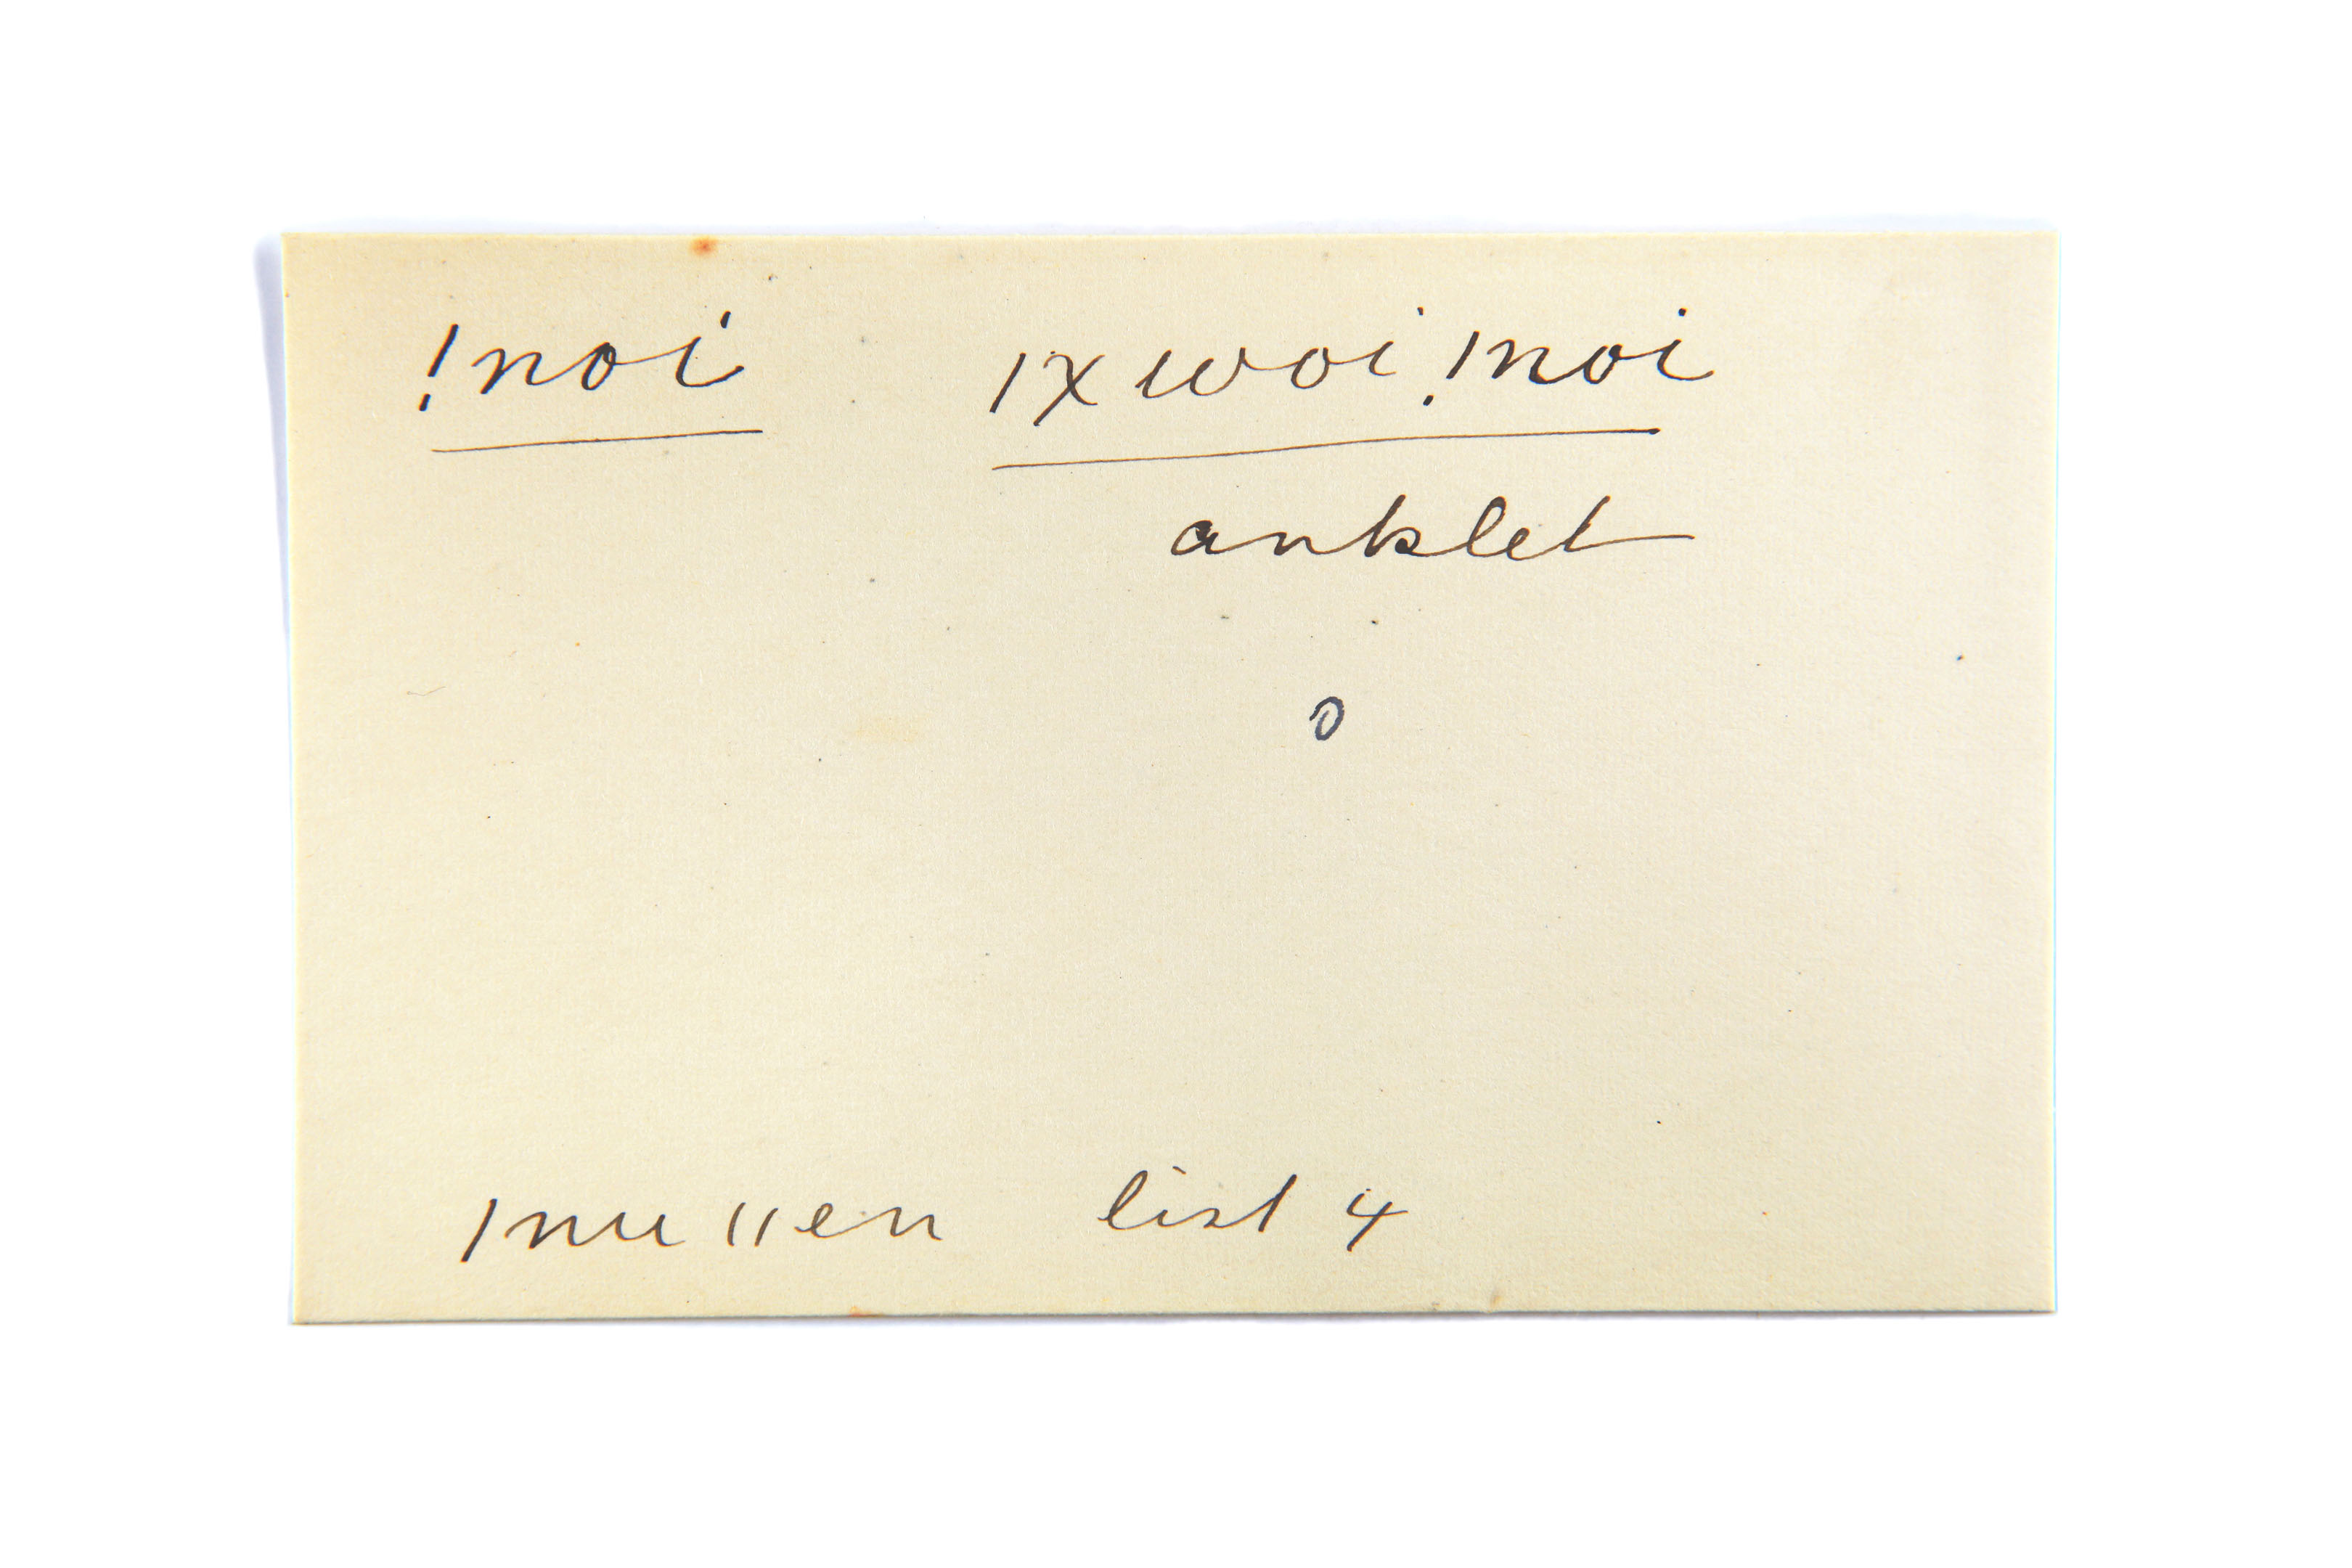 !noi ǀxwoi !noi
anklet
o
ǀnuǁen list 4